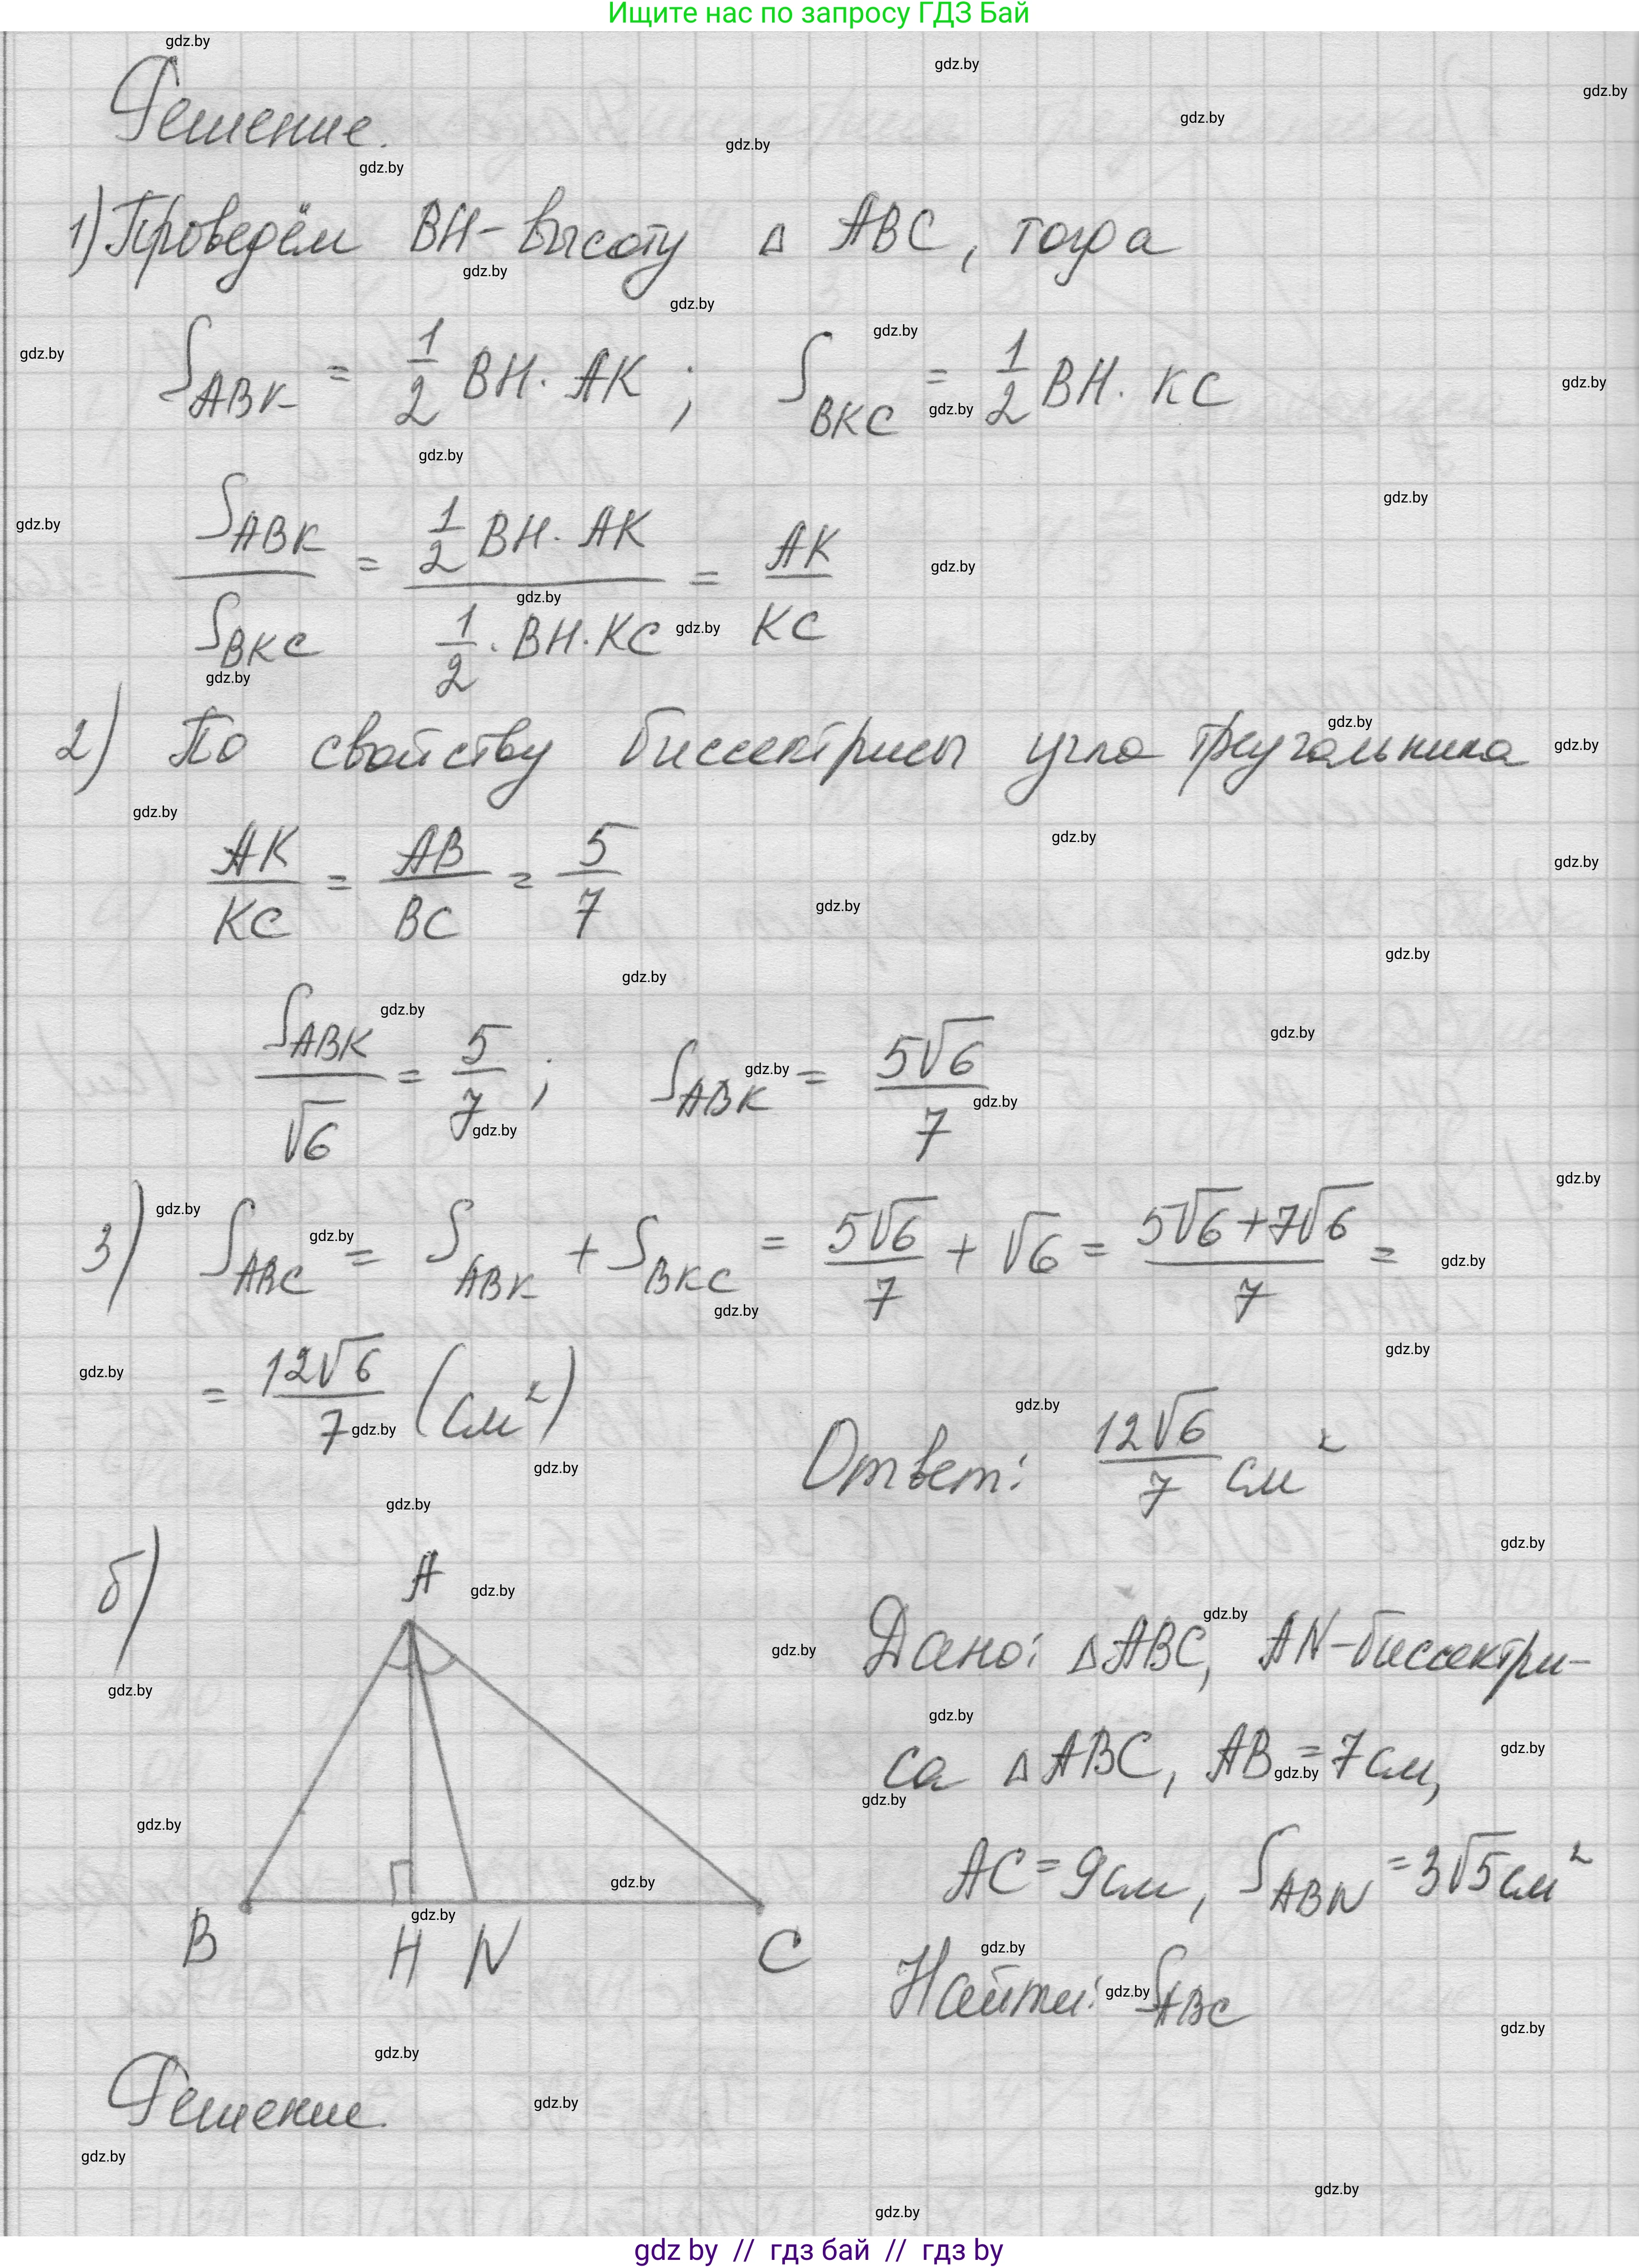 Ищите нас по запросу ГДЗ Бай
Решение.
1) Проведём BH – высоту △ ABC, тогда
S_ABK = 1/2 BH · AK ; S_BKC = 1/2 BH · KC
S_ABK / S_BKC = (1/2 BH · AK) / (1/2 · BH · KC) = AK / KC
2) По свойству биссектрисы угла треугольника
AK / KC = AB / BC = 5 / 7
S_ABK / √6 = 5 / 7 ; S_ABK = 5√6 / 7
3) S_ABC = S_ABK + S_BKC = 5√6 / 7 + √6 = (5√6 + 7√6) / 7 =
= 12√6 / 7 (см²)
Ответ: 12√6 / 7 см²
б)
A
B H N C
Дано: △ABC, AN – биссектри-
са △ABC, AB = 7 см,
AC = 9 см, S_ABN = 3√5 см²
Найти: S_ABC
Решение.
gdz by // гдз бай // гдз by